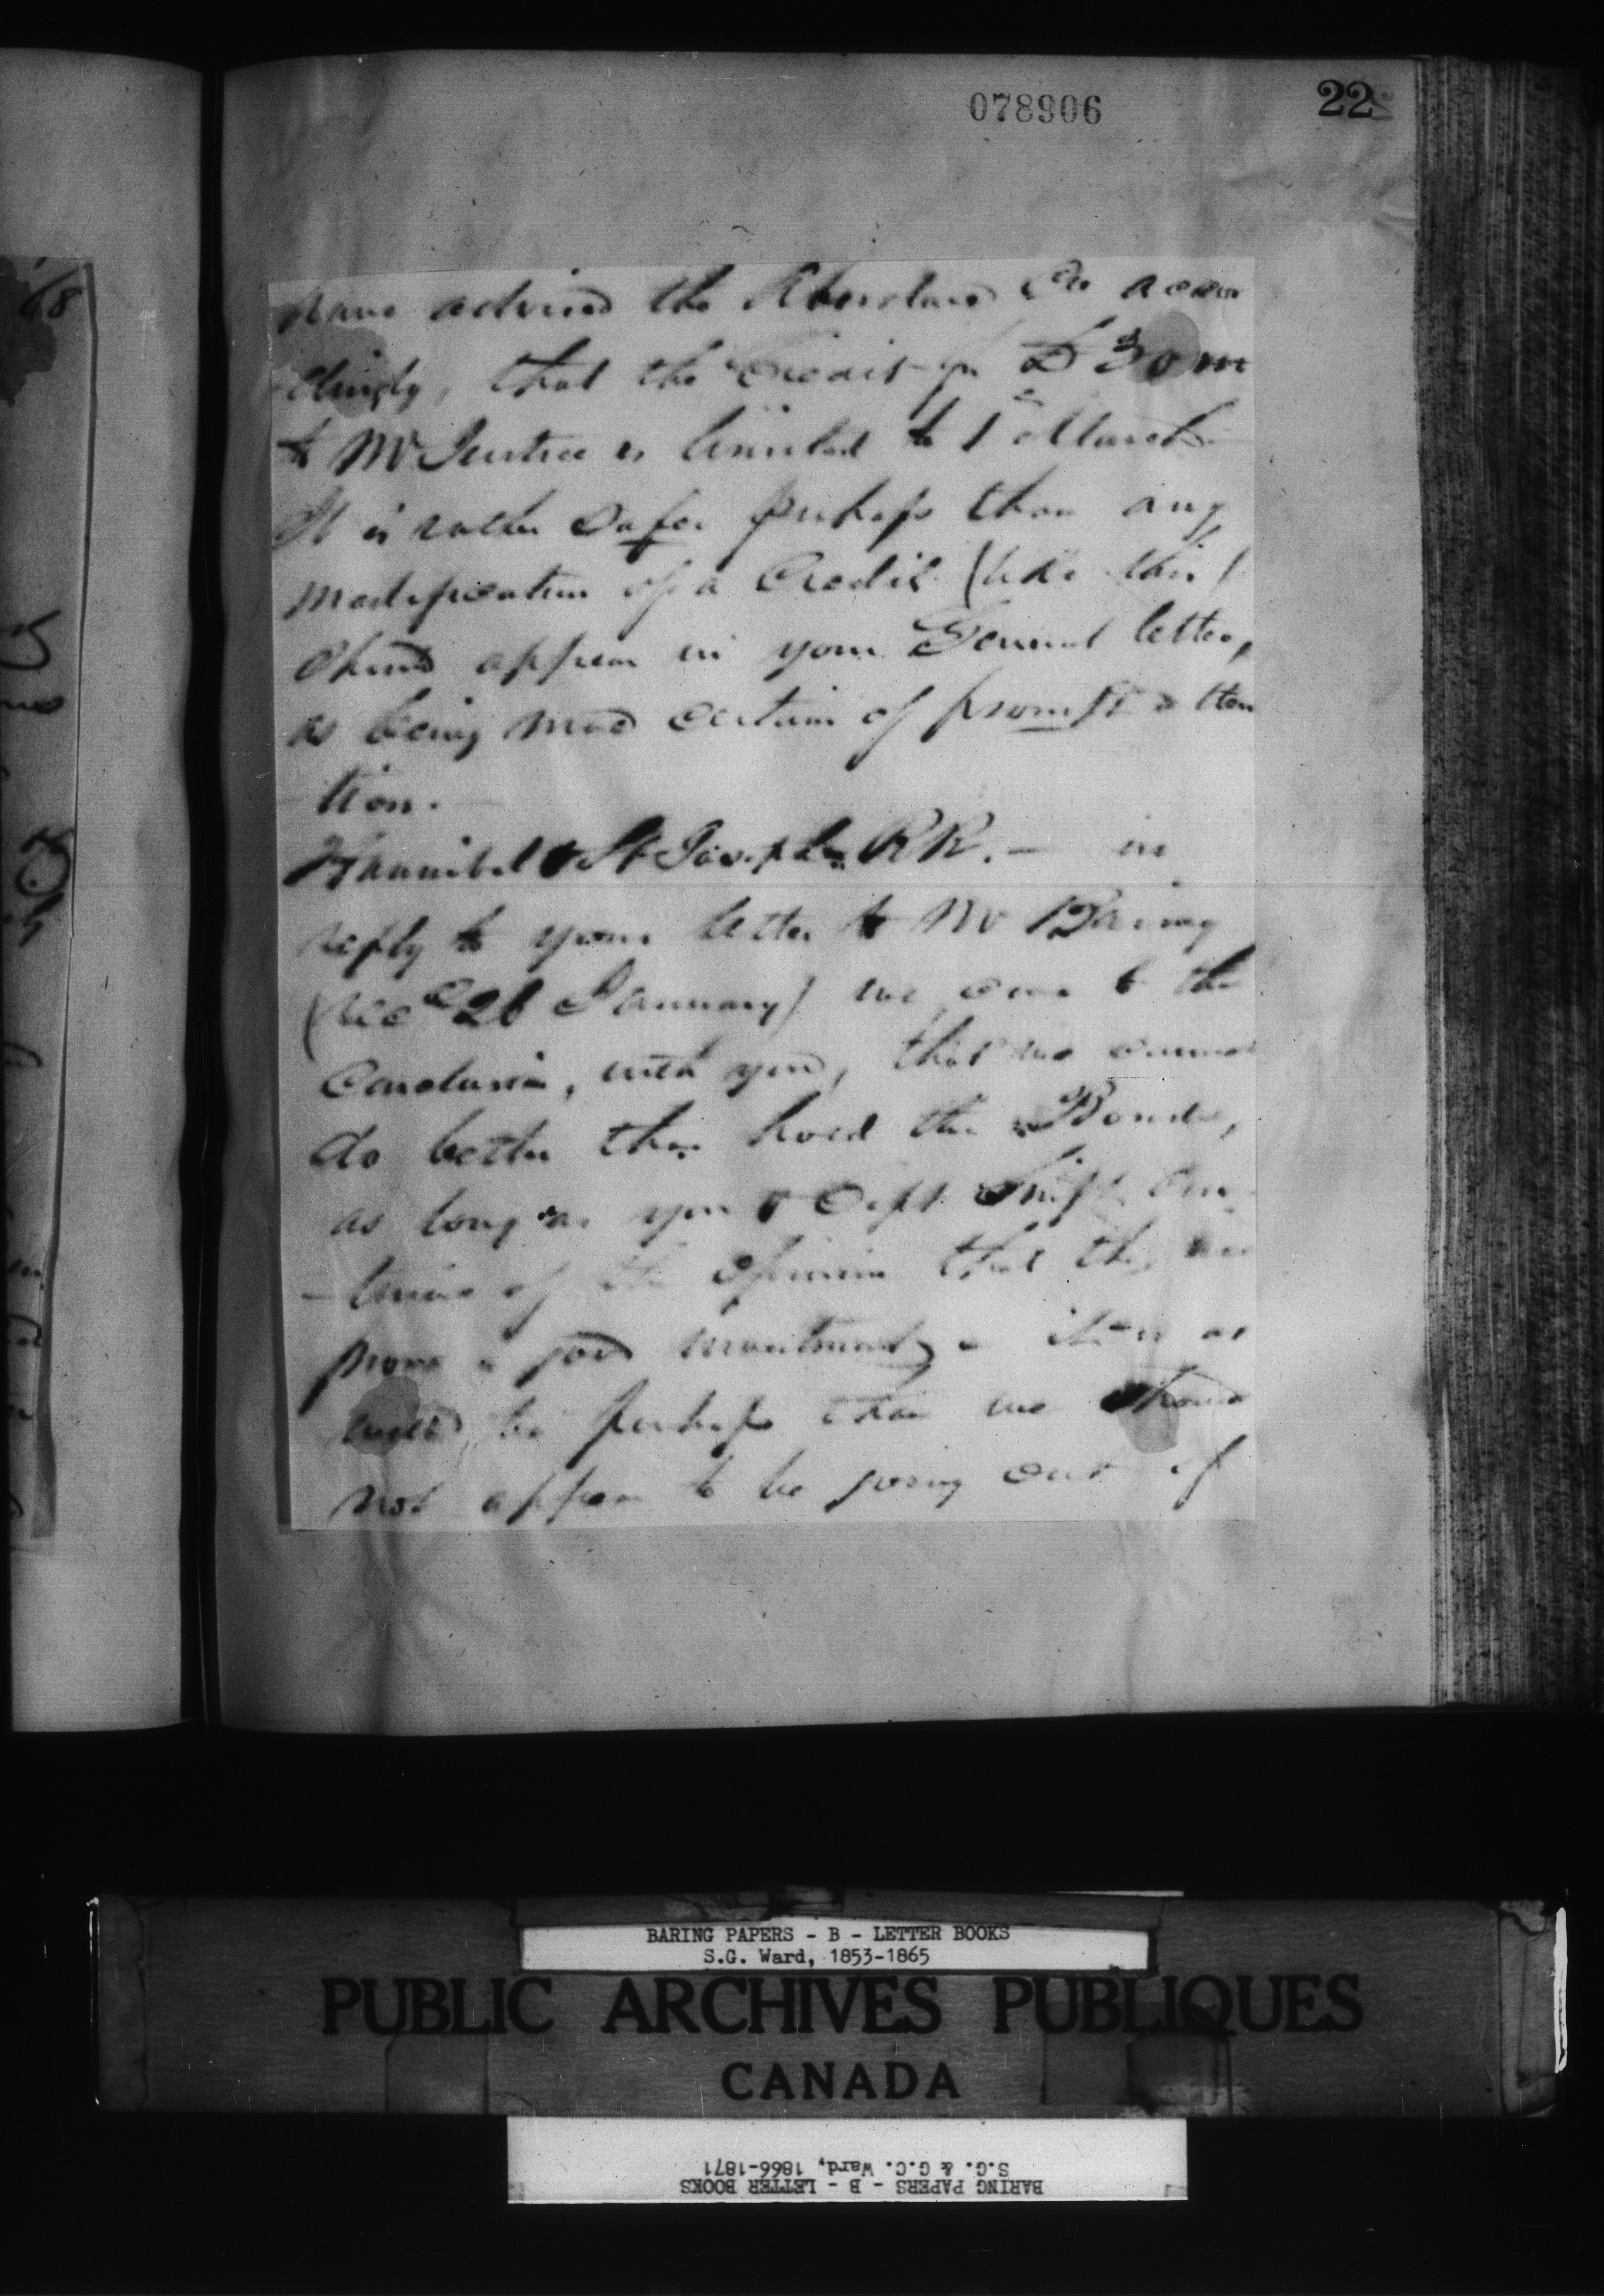 078906
22
have advised the Aberdare Co accor
dingly, that the Credit for £30m
to Mr Justice is limited to 1st March
It is rather safer perhaps than any
modification of a Credit (like this)
should appear in your General letter,
as being more certain of prompt atten
tion.
Hannibal & St Joseph RR. — in
reply to your letter to Mr Baring
(recd 26 January) we come to the
Conclusion, with you, that we cannot
do better than hold the Bonds,
as long as you & Capt Swift con
-tinue of the opinion that they are
prove a good investment, - it is as
well be perhaps that we should
not appear to be going out of
BARING PAPERS - B - LETTER BOOKS
S.G. Ward, 1853-1865
PUBLIC ARCHIVES PUBLIQUES
CANADA
BARING PAPERS - B - LETTER BOOKS
S.G. & G.C. Ward, 1866-1871